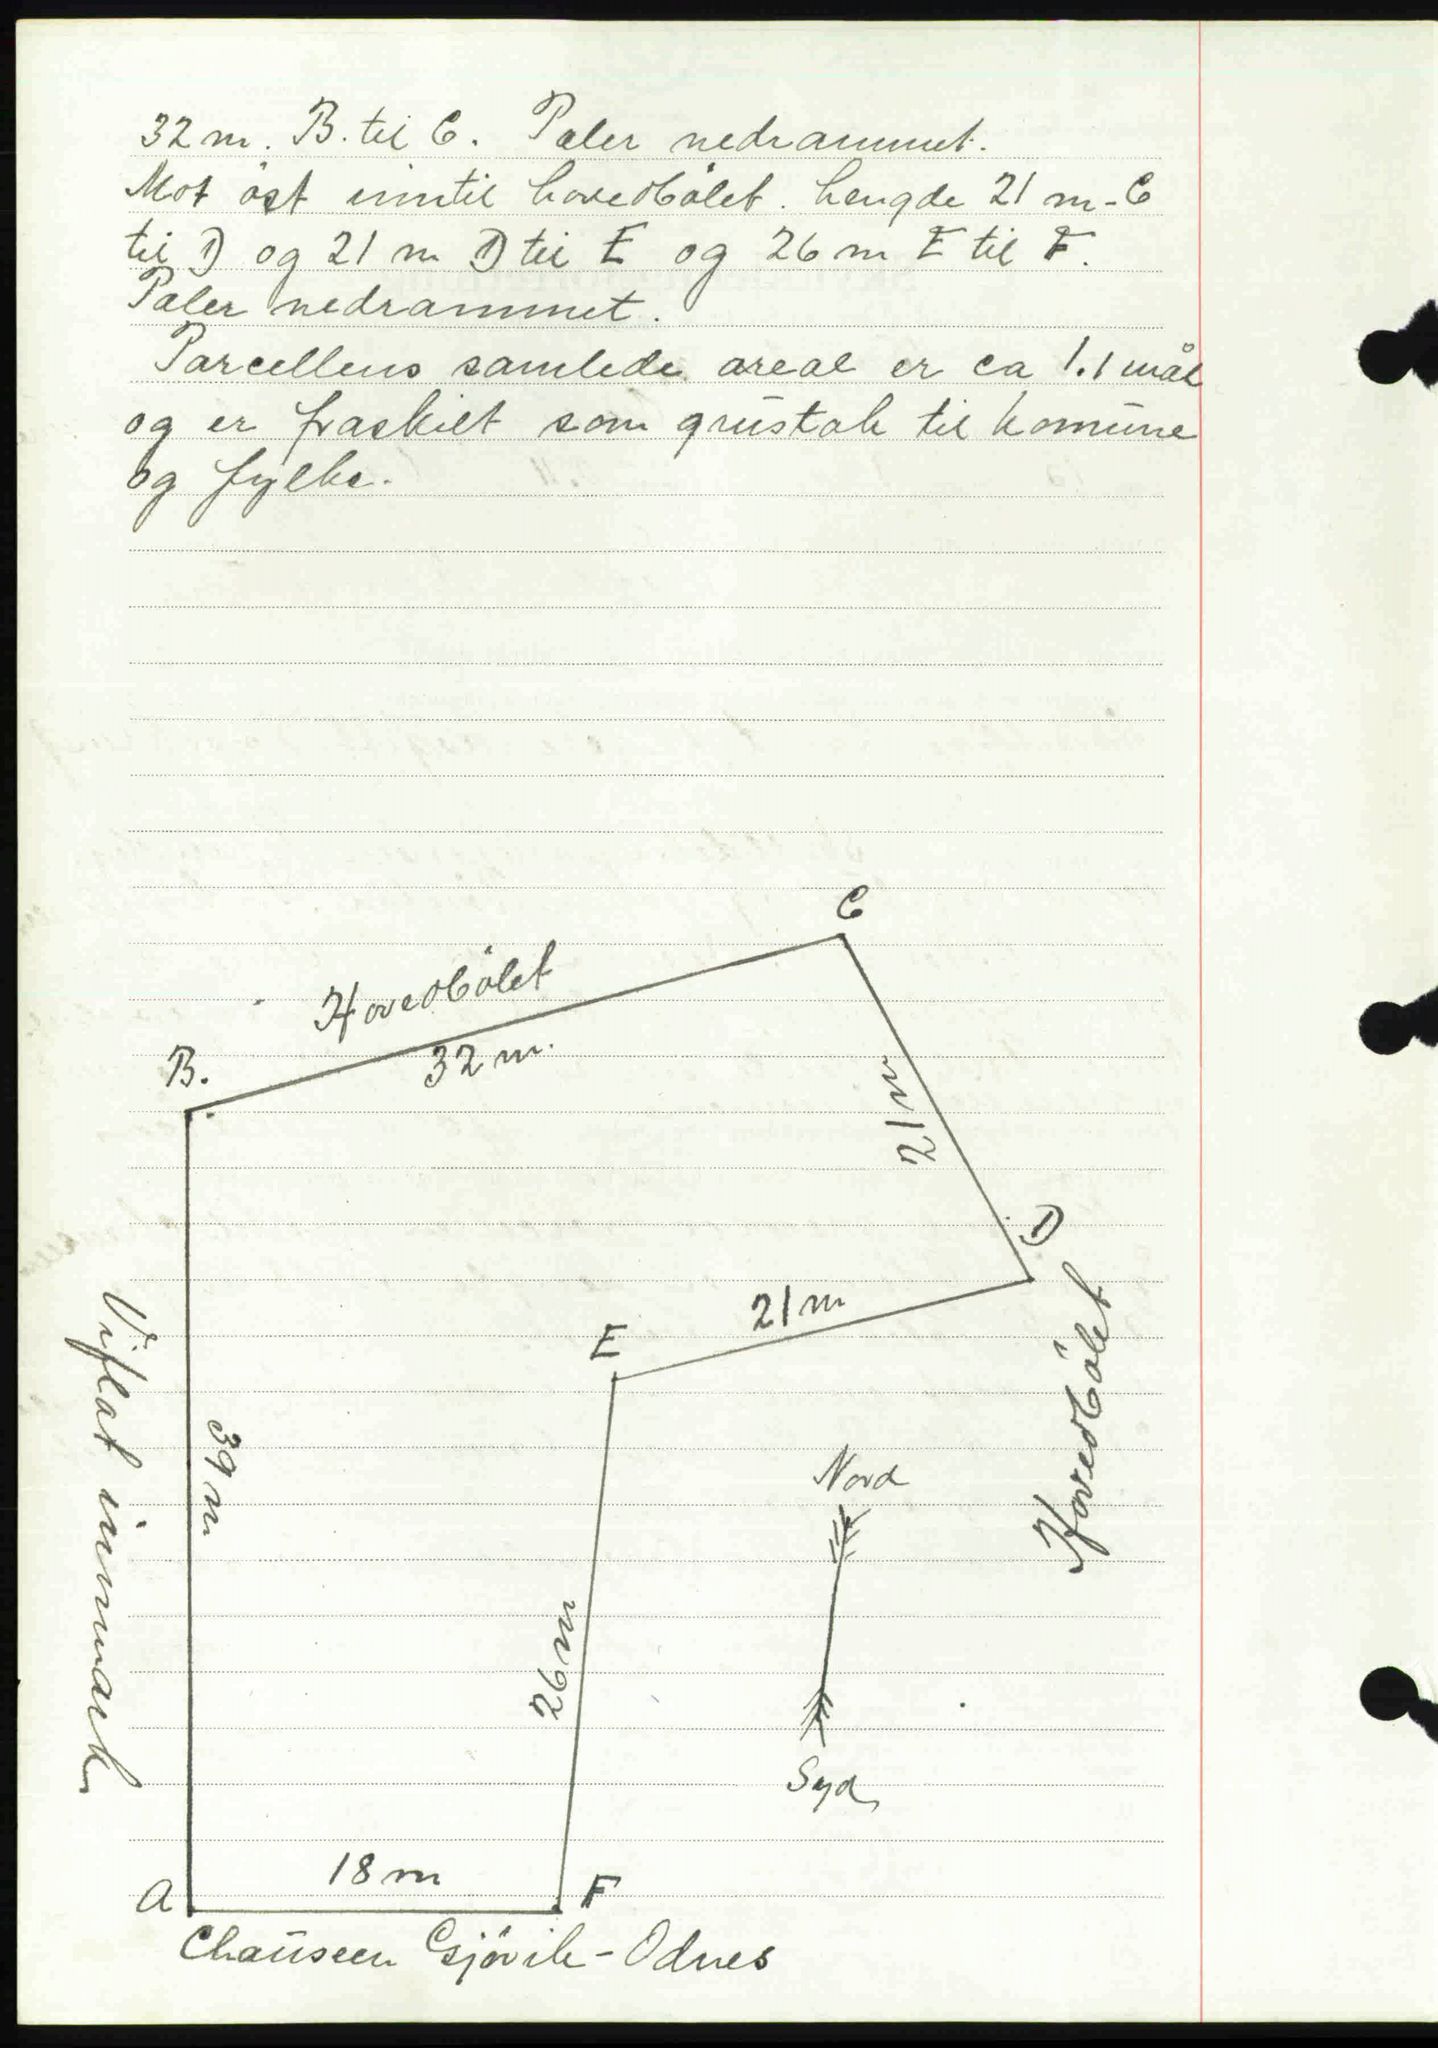 32 m. B. til C. Pæler nedrammet.
Mot öst inntil hovedbölet. Lengde 21 m - C
til D og 21 m D til E og 26 m E til F.
Pæler nedrammet.
Parcellens samlede areal er ca 1.1 mål
og er fraskilt som grustak til komune
og fylke.
C
Hovedbölet
B.
32 m.
21 m
D
21 m
E
Hovedbölet
Viflat innmark
39 m
Nord
26 m
Syd
18 m
A
F
Chauseen Gjövik - Odnes